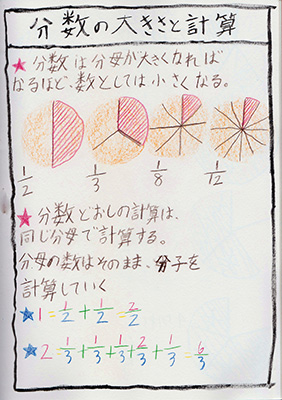 分数の大きさと計算
★分数は分母が大きくなれば
なるほど、数としては小さくなる。
1/2 1/3 1/8 1/12
★分数どおしの計算は、
同じ分母で計算する。
分母の数はそのまま、分子を
計算していく
★1=1/2+1/2=2/2
★2=1/3+1/3+1/3+2/3+1/3=6/3